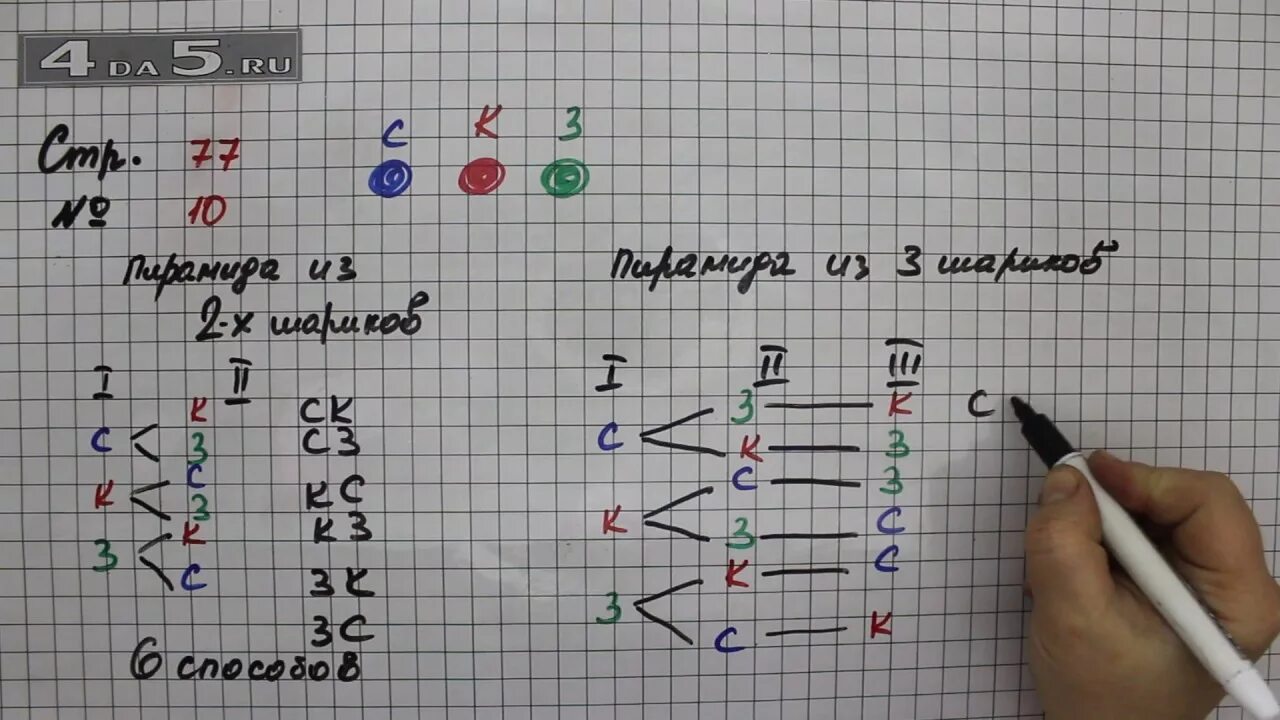 4DA5.RU
Стр. 77
№ 10
С К З
Пирамида из
2-х шариков
I II
К
С З
С
К З
К
З С
СК
СЗ
КС
КЗ
ЗК
ЗС
6 способов
Пирамида из 3 шариков
I II III
З — К
С
К — З
С — З
К
З — С
К — С
З
С — К
С